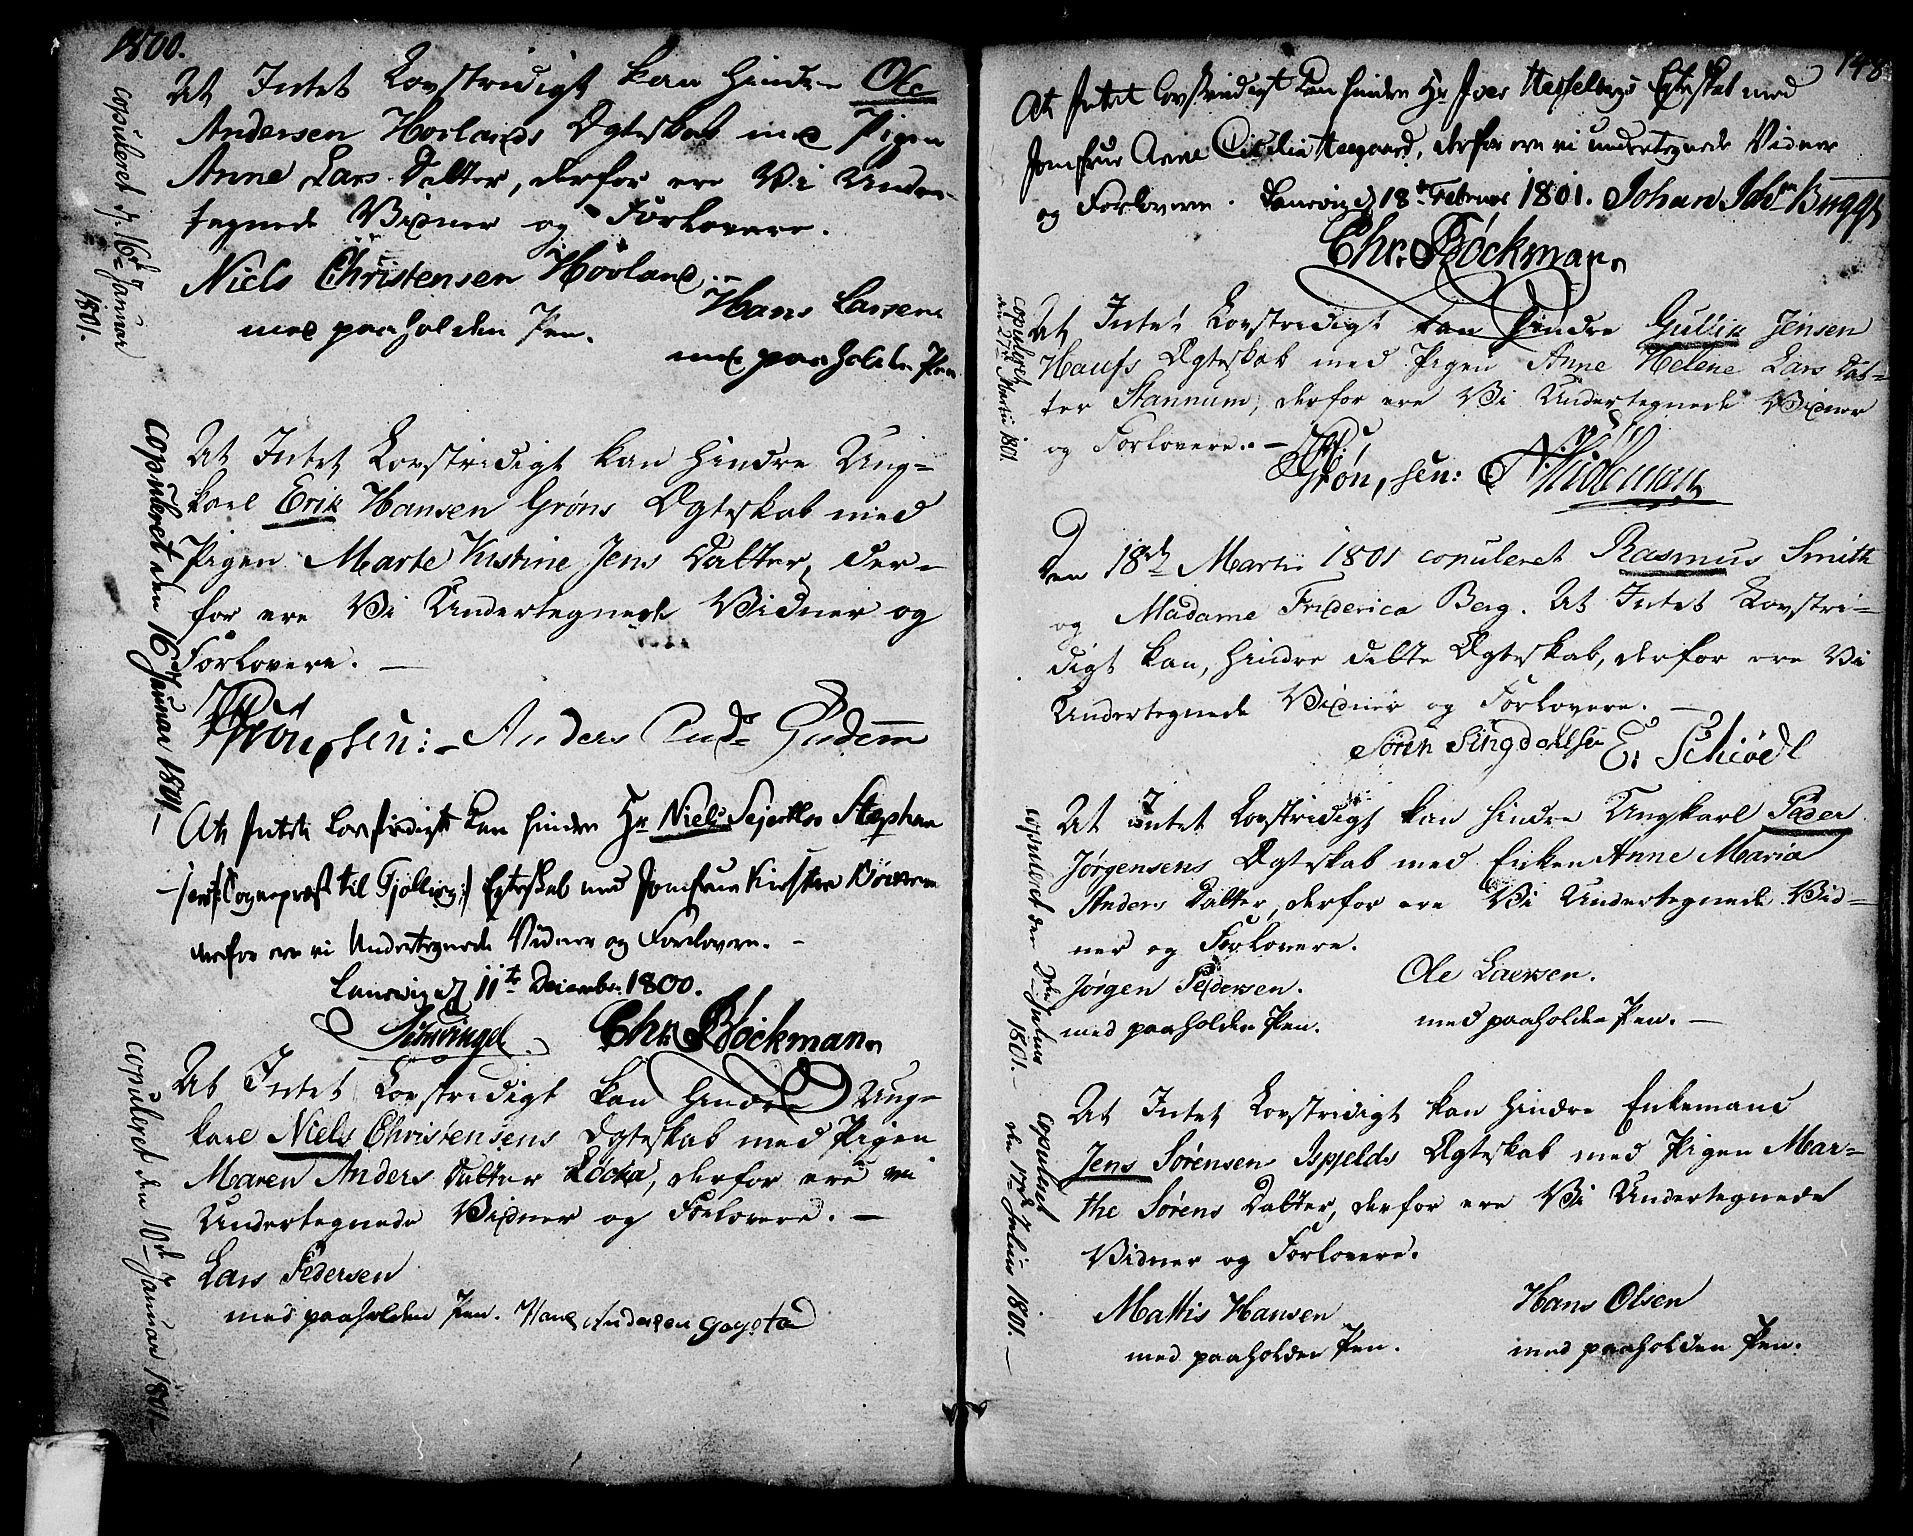 1800.
At Intet Lovstridigt kan hindre Ole
Andersen Hovlands Ægteskab med Pigen
Anne Lars Datter, derfor ere Vi Under-
tegnede Vidner og Forlovere.
Niels Christensen Hovland
med paaholden Pen.
Hans Larsen
med paaholden Pen
copuleret d. 16de Januar
1801.
At Intet Lovstridigt kan hindre Ung-
karl Erik Hansen Grøns Ægteskab med
Pigen Marte Kistine Jens Datter, der-
for ere Vi Undertegnede Vidner og
Forlovere. —
Grøn, sen: Anders
copuleret den 16 Januar 1801—
At Intet Lovstridigt kan hindre Hr. Niels Stephan
-sens /: Sognepræst til Tjølling :/ Egteskab med Jomfrue
derfor ere vi Undertegnede Vidner og Forlovere. —
Laurvig d. 11te December 1800.
Schwingel. Chr. Böckman.
At Intet Lovstridigt kan hindre Ung-
karl Niels Christensens Ægteskab med Pigen
Maren Anders Datter, derfor ere vi
Undertegnede Vidner og Forlovere. —
Lars Pedersen
med paaholden Pen. Hans Andersen
copuleret den 10de Januar 1801—
148
At Intet Lovstridigt kan hindre Hr Iver Hesselbergs Egteskab med
Jomfrue Anne Cicilia, derfor ere vi undertegnede Vidner
og Forlovere. Laurvig d. 18de Februar 1801. Johan Bugge
Chr. Böckman.
At Intet Lovstridigt kan hindre Gullik Jensen
Ægteskab med Pigen Anne Helene Lars Dat-
ter Stannum, derfor ere Vi Undertegnede Vidner
og Forlovere. —
Grøn, sen:
copuleret
den 27de Martii 1801.
Den 18de Martii 1801 copuleret Rasmus Smith
og Madame Friderica Berg. At Intet Lovstri-
digt kan hindre dette Ægteskab, derfor ere Vi
Undertegnede Vidner og Forlovere. —
Søren Singdahlsen E. Schiødt
At Intet Lovstridigt kan hindre Ungkarl Peder
Jørgensens Ægteskab med Enken Anne Maria
Anders Datter, derfor ere Vi Undertegnede Vid-
ner og Forlovere.
Jørgen Pedersen.
med paaholden Pen.
Ole Larsen.
med paaholden Pen. —
copuleret den 2den Julius
1801.—
At Intet Lovstridigt kan hindre Enkemand
Jens Sørensen Ispjelds Ægteskab med Pigen Mar-
the Sørens Datter, derfor ere Vi Undertegnede
Vidner og Forlovere.
Mattis Hansen
med paaholden Pen.
Hans Olsen
med paaholden Pen.
copuleret
den 17de Julius 1801. —